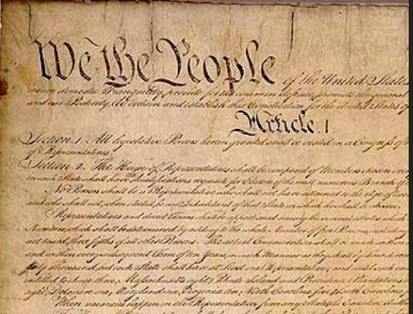 We the People of the United States
insure domestic Tranquility, provide for the common defence, promote the general
and our Posterity, do ordain and establish this Constitution for the United States of
Article. I.
Section. 1. All legislative Powers herein granted shall be vested in a Congress of the
of Representatives.
Section. 2. The House of Representatives shall be composed of Members chosen every
in each State shall have the Qualifications requisite for Electors of the most numerous Branch of
No Person shall be a Representative who shall not have attained to the Age of
and who shall not, when elected, be an Inhabitant of that State in which he shall be chosen.
Representatives and direct Taxes shall be apportioned among the several States which
Numbers, which shall be determined by adding to the whole Number of free Persons, including
not taxed, three fifths of all other Persons. The actual Enumeration shall be made within
and within every subsequent Term of ten Years, in such Manner as they shall by
thirty Thousand, but each State shall have at Least one Representative; and until such
entitled to chuse three, Massachusetts eight, Rhode Island and Providence Plantations
eight, Delaware one, Maryland six, Virginia ten, North Carolina five, South Carolina
When vacancies happen in the Representation from any State, the Executive